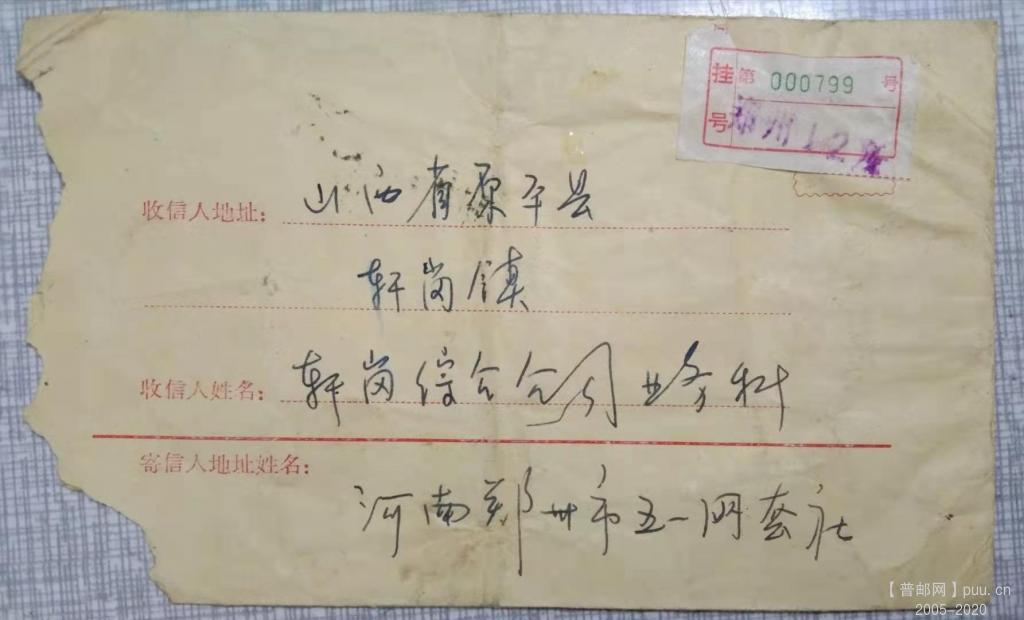 挂 第 000799 号
号 郑州12支
收信人地址: 山西省原平县
轩岗镇
收信人姓名: 轩岗综合公司业务科
寄信人地址姓名:
河南郑州市五一网套社
【普邮网】puu.cn
2005-2020